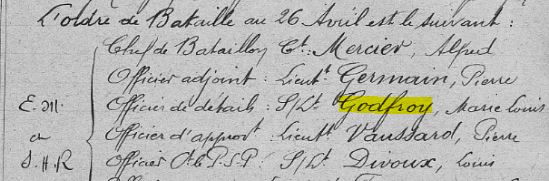 L'ordre de Bataille au 26 Avril est le suivant :
Chef de Bataillon Ct. Mercier, Alfred
Officier adjoint : Lieutt. Germain, Pierre
E.M. Officier de détails : S/Lt. Godfroy, Marie Louis
et Officier d'approvt. : Lieutt. Vaussard, Pierre
S.H.R Officier P.S.P : S/Lt. Divoux, Louis